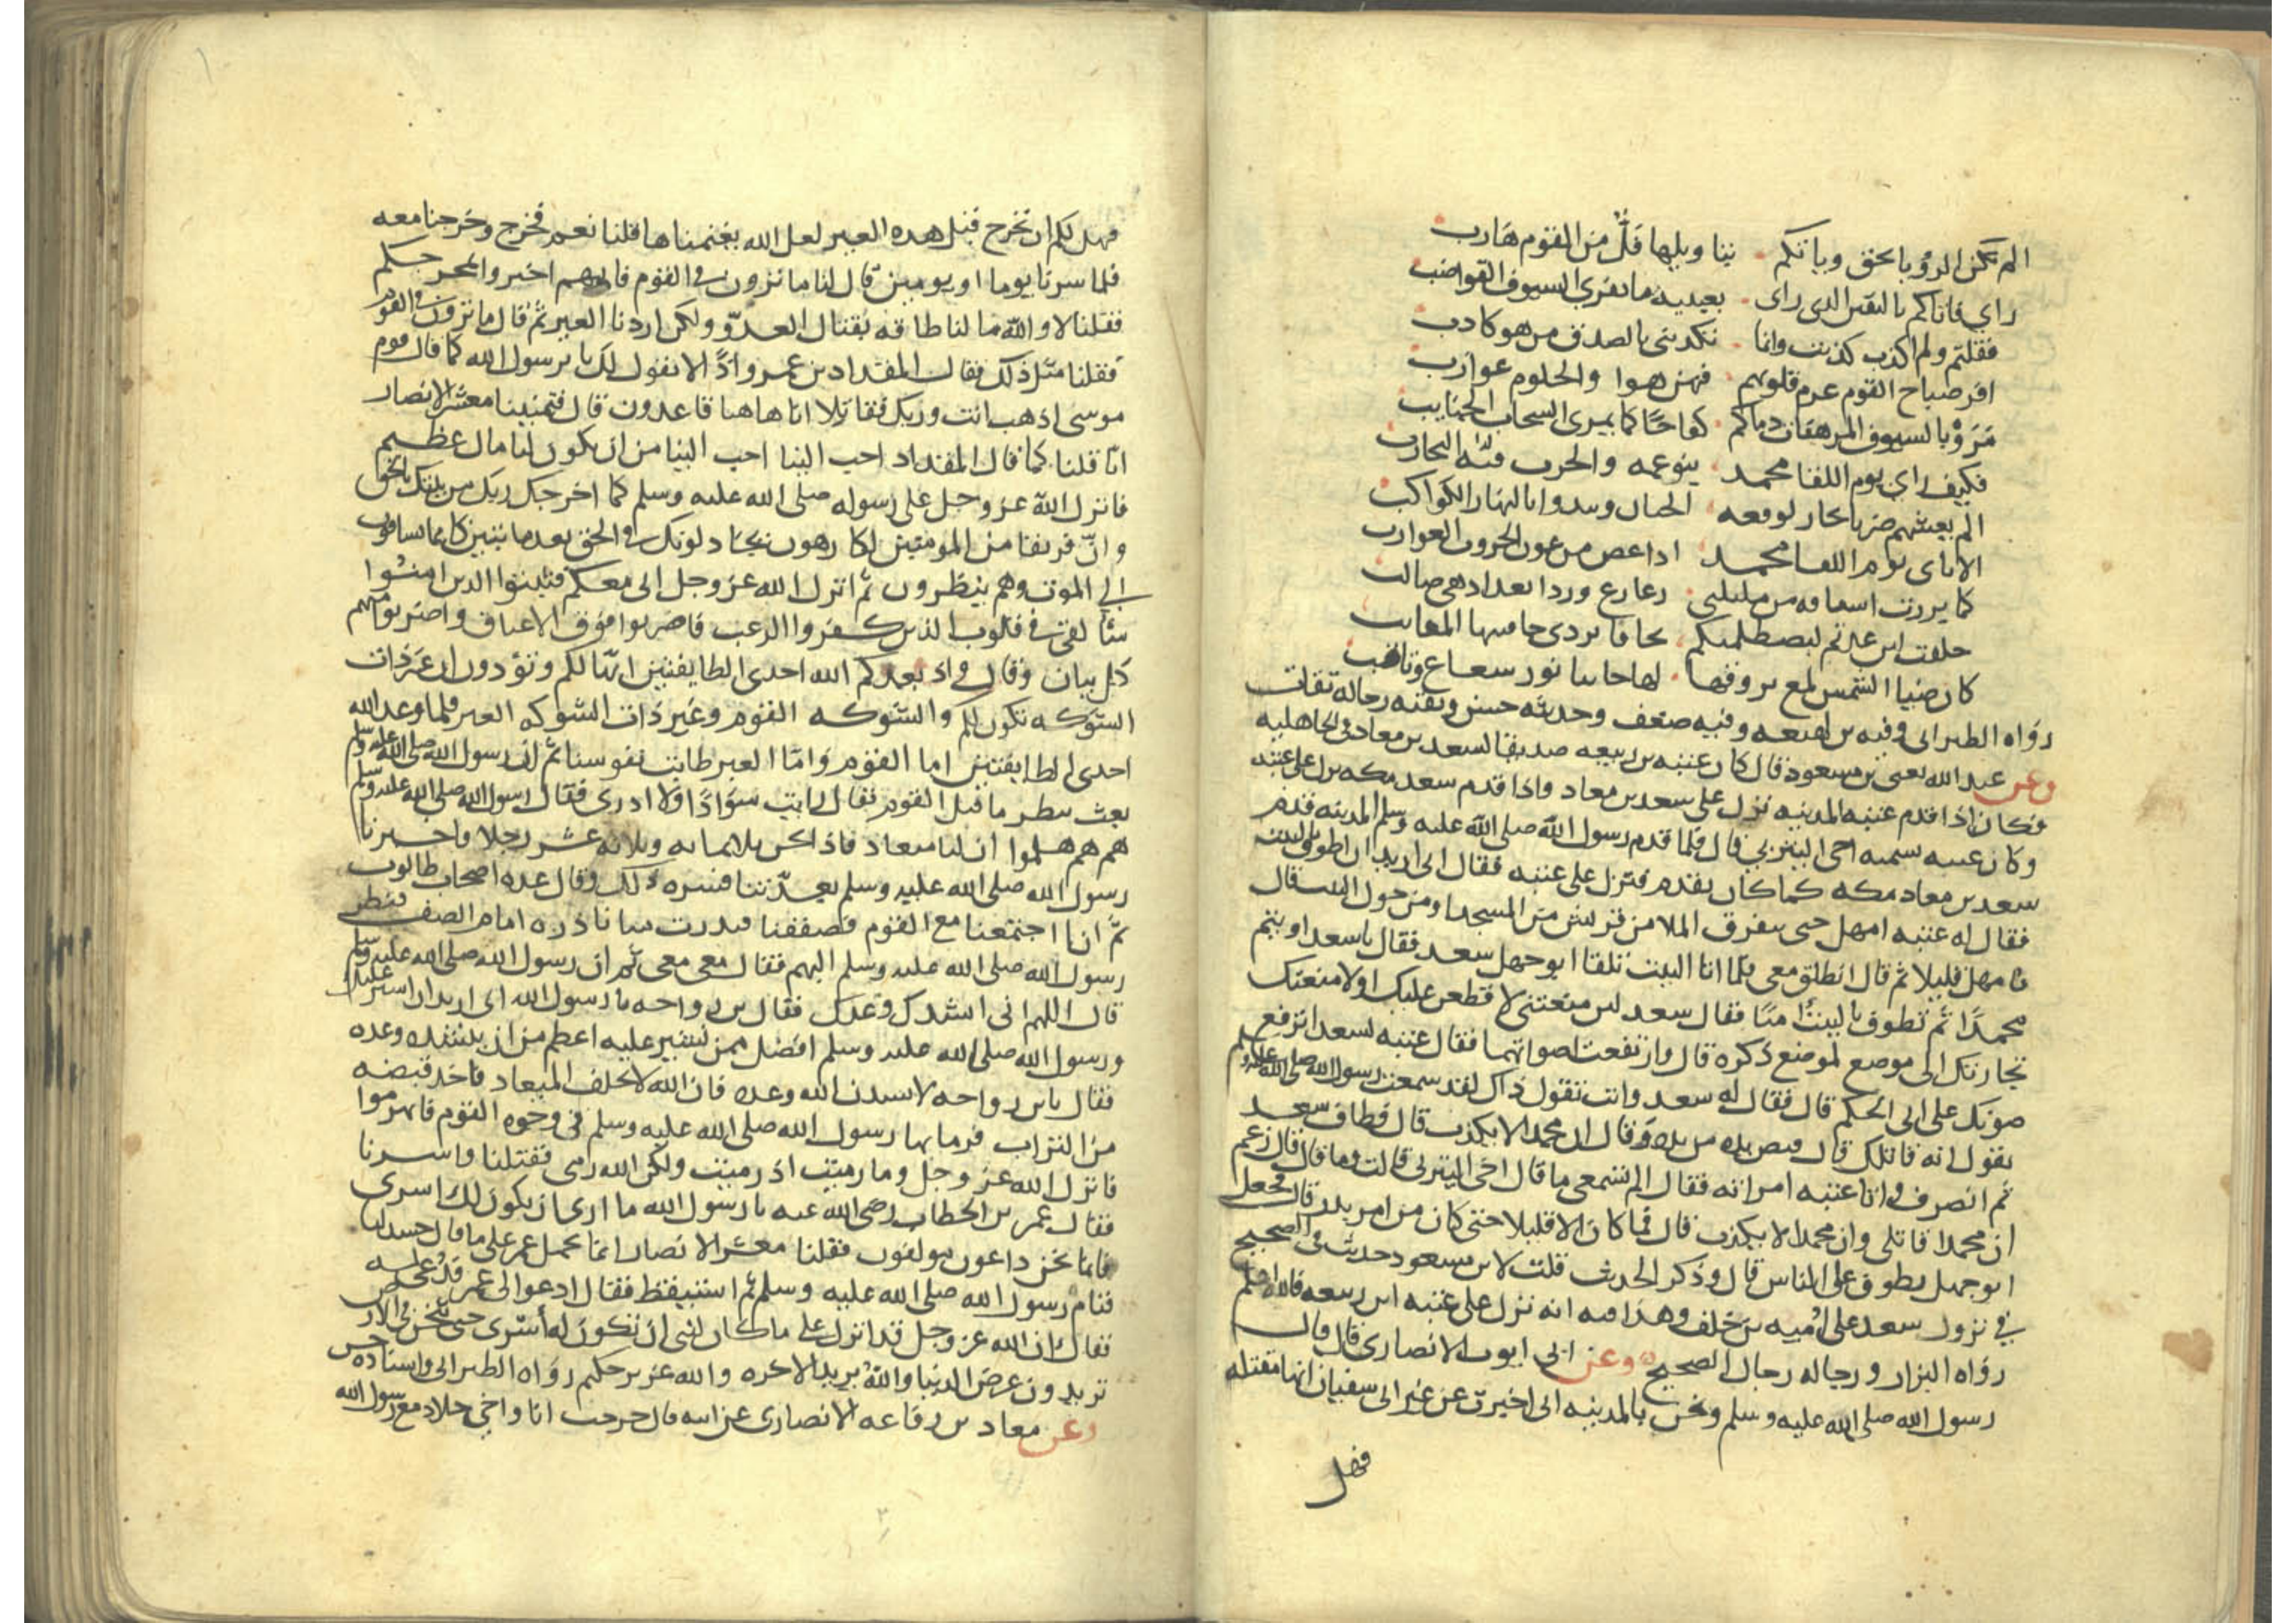 الم تكن الرؤيا بحق وياتكم بتاويلها فل من القوم هارب
راى فاتاكم باليقين الذى راى بعينيه ما تفرى السيوف القواضب
فقلتم ولم اكذب كذبت وانما تكذبنى بالصدق من هو كاذب
افر صباح القوم عزم قلوبهم فهن هوا والحلوم عوازب
مروا بالسيوف المرهفات دماكم كفاحا كما يمرى السحاب الجنايب
فكيف راى يوم اللقا محمد بنو عمه والحرب فيه التجارب
الم يغشهم ضربا يحار لوقعه الجبان وبدوا بالنهار الكواكب
الا باى يوم اللقا محمدا اذا عض من عون الحروب الغوارب
كما بررت اسيافه من مليلتى زعازع وردا بعد اذ هى صالب
حلفت لين عدتم ليصطلمنكم بحافا تردى حافتيها المقانب
كان ضيا الشمس لمع بروقها لها جانبا نور شعاع وثاقب
رواه الطبرانى وفيه بن لهيعه وفيه ضعف وحديثه حسن وبقيه رجاله ثقات
وعن عبد الله يعنى بن مسعود قال كان عتبه بن ربيعه صديقا لسعد بن معاد فى الجاهليه
فكان اذا قدم عتبه المدينه نزل على سعد بن معاد واذا قدم سعد مكه نزل على عتبه
وكان عتبه يسميه اخى اليثربى قال فلما قدم رسول الله صلى الله عليه وسلم المدينه قدم
سعد بن معاد مكه كما كان يقدم فنزل على عتبه فقال انى اريد ان اطوف بالبيت
فقال له عتبه امهل حتى يتفرق الملا من قريش من المسجد او من حول البيت قال
فامهل قليلا ثم قال انطلق معى فلما اتا البيت تلقا ابو جهل سعد فقال يا سعد اويتم
محمدا ثم تطوف بالبيت امنا فقال سعد لين منعتنى لاقطعن عليك او لامنعنك
تجارتك الى موضع لموضع ذكره قال وارتفعت اصواتهما فقال عتبه لسعد اترفع
صوتك على ابى الحكم قال فقال له سعد وانت تقول ذاك لقد سمعت رسول الله صلى الله عليه وسلم
يقول انه قاتلك قال فنفض يده من يده وقال ان محمدا لا يكذب قال فطاف سعد
ثم انصرف واتا عتبه امراته فقال الم تسمعى ما قال اخى اليثربى قالت وما قال قال زعم
ان محمدا قاتلى وان محمدا لا يكذب قال فما كان الا قليلا حتى كان من امر بدر قال فجعل
ابو جهل يطوف على الناس قال وذكر الحديث قلت لابن مسعود حديث فى الصحيح
في نزول سعد على اميه بن خلف وهذا فيه انه نزل على عتبه ابن ربيعه فالله اعلم
رواه البزار ورجاله رجال الصحيح وعن ابى ايوب الانصارى قال قال
رسول الله صلى الله عليه وسلم ونحن بالمدينه انى اخبرت عن عير ابى سفيان انها مقبله
فهل
فهل لكم ان نخرج قبل هذه العير لعل الله يغنمناها قلنا نعم فخرج وخرجنا معه
فلما سرنا يوما او يومين قال لنا ما ترون فى القوم فانهم اخبروا بمخرجكم
فقلنا لا والله ما لنا طاقه بقتال العدو ولكن اردنا العير ثم قال ما ترون فى القوم
فقلنا مثل ذلك فقال المقداد بن عمرو اذا لا نقول لك يا رسول الله كما قال قوم
موسى اذهب انت وربك فقاتلا انا هاهنا قاعدون قال فتمنينا معشر الانصار
انا قلنا كما قال المقداد احب الينا احب الينا من ان يكون لنا مال عظيم
فانزل الله عز وجل على رسوله صلى الله عليه وسلم كما اخرجك ربك من بيتك بالحق
وان فريقا من المومنين لكارهون يجادلونك فى الحق بعد ما تبين كانما يساقون
الى الموت وهم ينظرون ثم انزل الله عز وجل انى معكم فثبتوا الذين امنوا
سألقى في قلوب الذين كفروا الرعب فاضربوا فوق الاعناق واضربوا منهم
كل بنان وقال واذ يعدكم الله احدى الطايفتين انها لكم وتودون ان غير ذات
الشوكه تكون لكم والشوكه القوم وغير ذات الشوكه العير فلما وعد الله
احدى الطايفتين اما القوم واما العير طابت نفوسنا ثم ان رسول الله صلى الله عليه وسلم
بعث ينظر ما قبل القوم فقال رايت سوادا ولا ادرى فقال رسول الله صلى الله عليه وسلم
هم هم هلموا ان نتعاد فاذا نحن ثلاثمايه وثلاثه عشر رجلا فاخبرنا
رسول الله صلى الله عليه وسلم بعدتنا فسره ذلك وقال عده اصحاب طالوت
ثم انا اجتمعنا مع القوم فصففنا فبدرت منا بادره امام الصف فنظر
رسول الله صلى الله عليه وسلم اليهم فقال معى معى ثم ان رسول الله صلى الله عليه وسلم
قال اللهم انى انشدك وعدك فقال بن رواحه يا رسول الله انى اريد ان اشير عليك
ورسول الله صلى الله عليه وسلم افضل ممن نشير عليه اعظم من ان ينشده وعده
فقال يابن رواحه لانشدن الله وعده فان الله لا يخلف الميعاد فاخذ قبضه
من التراب فرما بها رسول الله صلى الله عليه وسلم فى وجوه القوم فانهزموا
فانزل الله عز وجل وما رميت اذ رميت ولكن الله رمى فقتلنا واسرنا
فقال عمر بن الخطاب رضى الله عنه يا رسول الله ما ارى ان يكون لك اسرى
فانما نحن داعون مولفون فقلنا معشر الانصار انما يحمل عمر على ما قال حسد لنا
فنام رسول الله صلى الله عليه وسلم ثم استيقظ فقال ادعوا لى عمر فدعى له
فقال ان الله عز وجل قد انزل على ما كان لنبى ان تكون له أسرى حتى يثخن فى الارض
تريدون عرض الدنيا والله يريد الاخره والله عزيز حكيم رواه الطبرانى واسناده حسن
وعن معاد بن رفاعه الانصارى عن ابيه قال خرجت انا واخى خلاد مع رسول الله